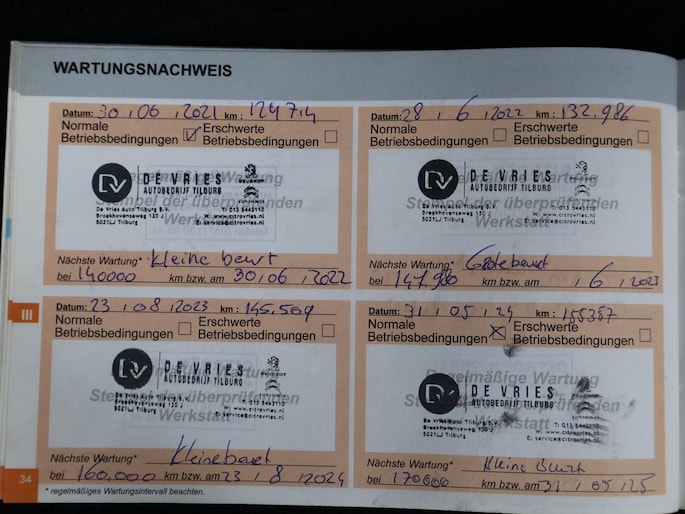 WARTUNGSNACHWEIS
Datum: 30 / 06 / 2021 km: 124714
Normale Betriebsbedingungen Erschwerte Betriebsbedingungen
DE VRIES
AUTOBEDRIJF TILBURG
De Vries Auto Tilburg B.V.
Broekhovenseweg 130 J
5021LJ Tilburg
T: 013 5443110
W: www.citrovries.nl
E: service@citrovries.nl
Regelmäßige Wartung
Stempel der überprüfenden
Werkstatt
Nächste Wartung* kleine beurt
bei 140000 km bzw. am 30 / 06 / 2022
Datum: 28 / 6 / 2022 km: 132.986
Normale Betriebsbedingungen Erschwerte Betriebsbedingungen
DE VRIES
AUTOBEDRIJF TILBURG
De Vries Auto Tilburg B.V.
Broekhovenseweg 130 J
5021LJ Tilburg
T: 013 5443110
W: www.citrovries.nl
E: service@citrovries.nl
Regelmäßige Wartung
Stempel der überprüfenden
Werkstatt
Nächste Wartung* Grote beurt
bei 147.986 km bzw. am / 6 / 2023
III
Datum: 23 / 08 / 2023 km: 145.509
Normale Betriebsbedingungen Erschwerte Betriebsbedingungen
DE VRIES
AUTOBEDRIJF TILBURG
Broekhovenseweg 130 J
5021LJ Tilburg
T: 013 5443110
W: www.citrovries.nl
E: service@citrovries.nl
Regelmäßige Wartung
Werkstatt
Nächste Wartung* Kleine beurt
bei 160.000 km bzw. am 23 / 8 / 2024
Datum: 31 / 05 / 24 km: 155357
Normale Betriebsbedingungen Erschwerte Betriebsbedingungen
DE VRIES
AUTOBEDRIJF TILBURG
Broekhovenseweg 130 J
5021LJ Tilburg
T: 013 5443110
W: www.citrovries.nl
E: service@citrovries.nl
Regelmäßige Wartung
Werkstatt
Nächste Wartung* Kleine Beurt
bei 170000 km bzw. am 31 / 05 / 25
34
* regelmäßiges Wartungsintervall beachten.